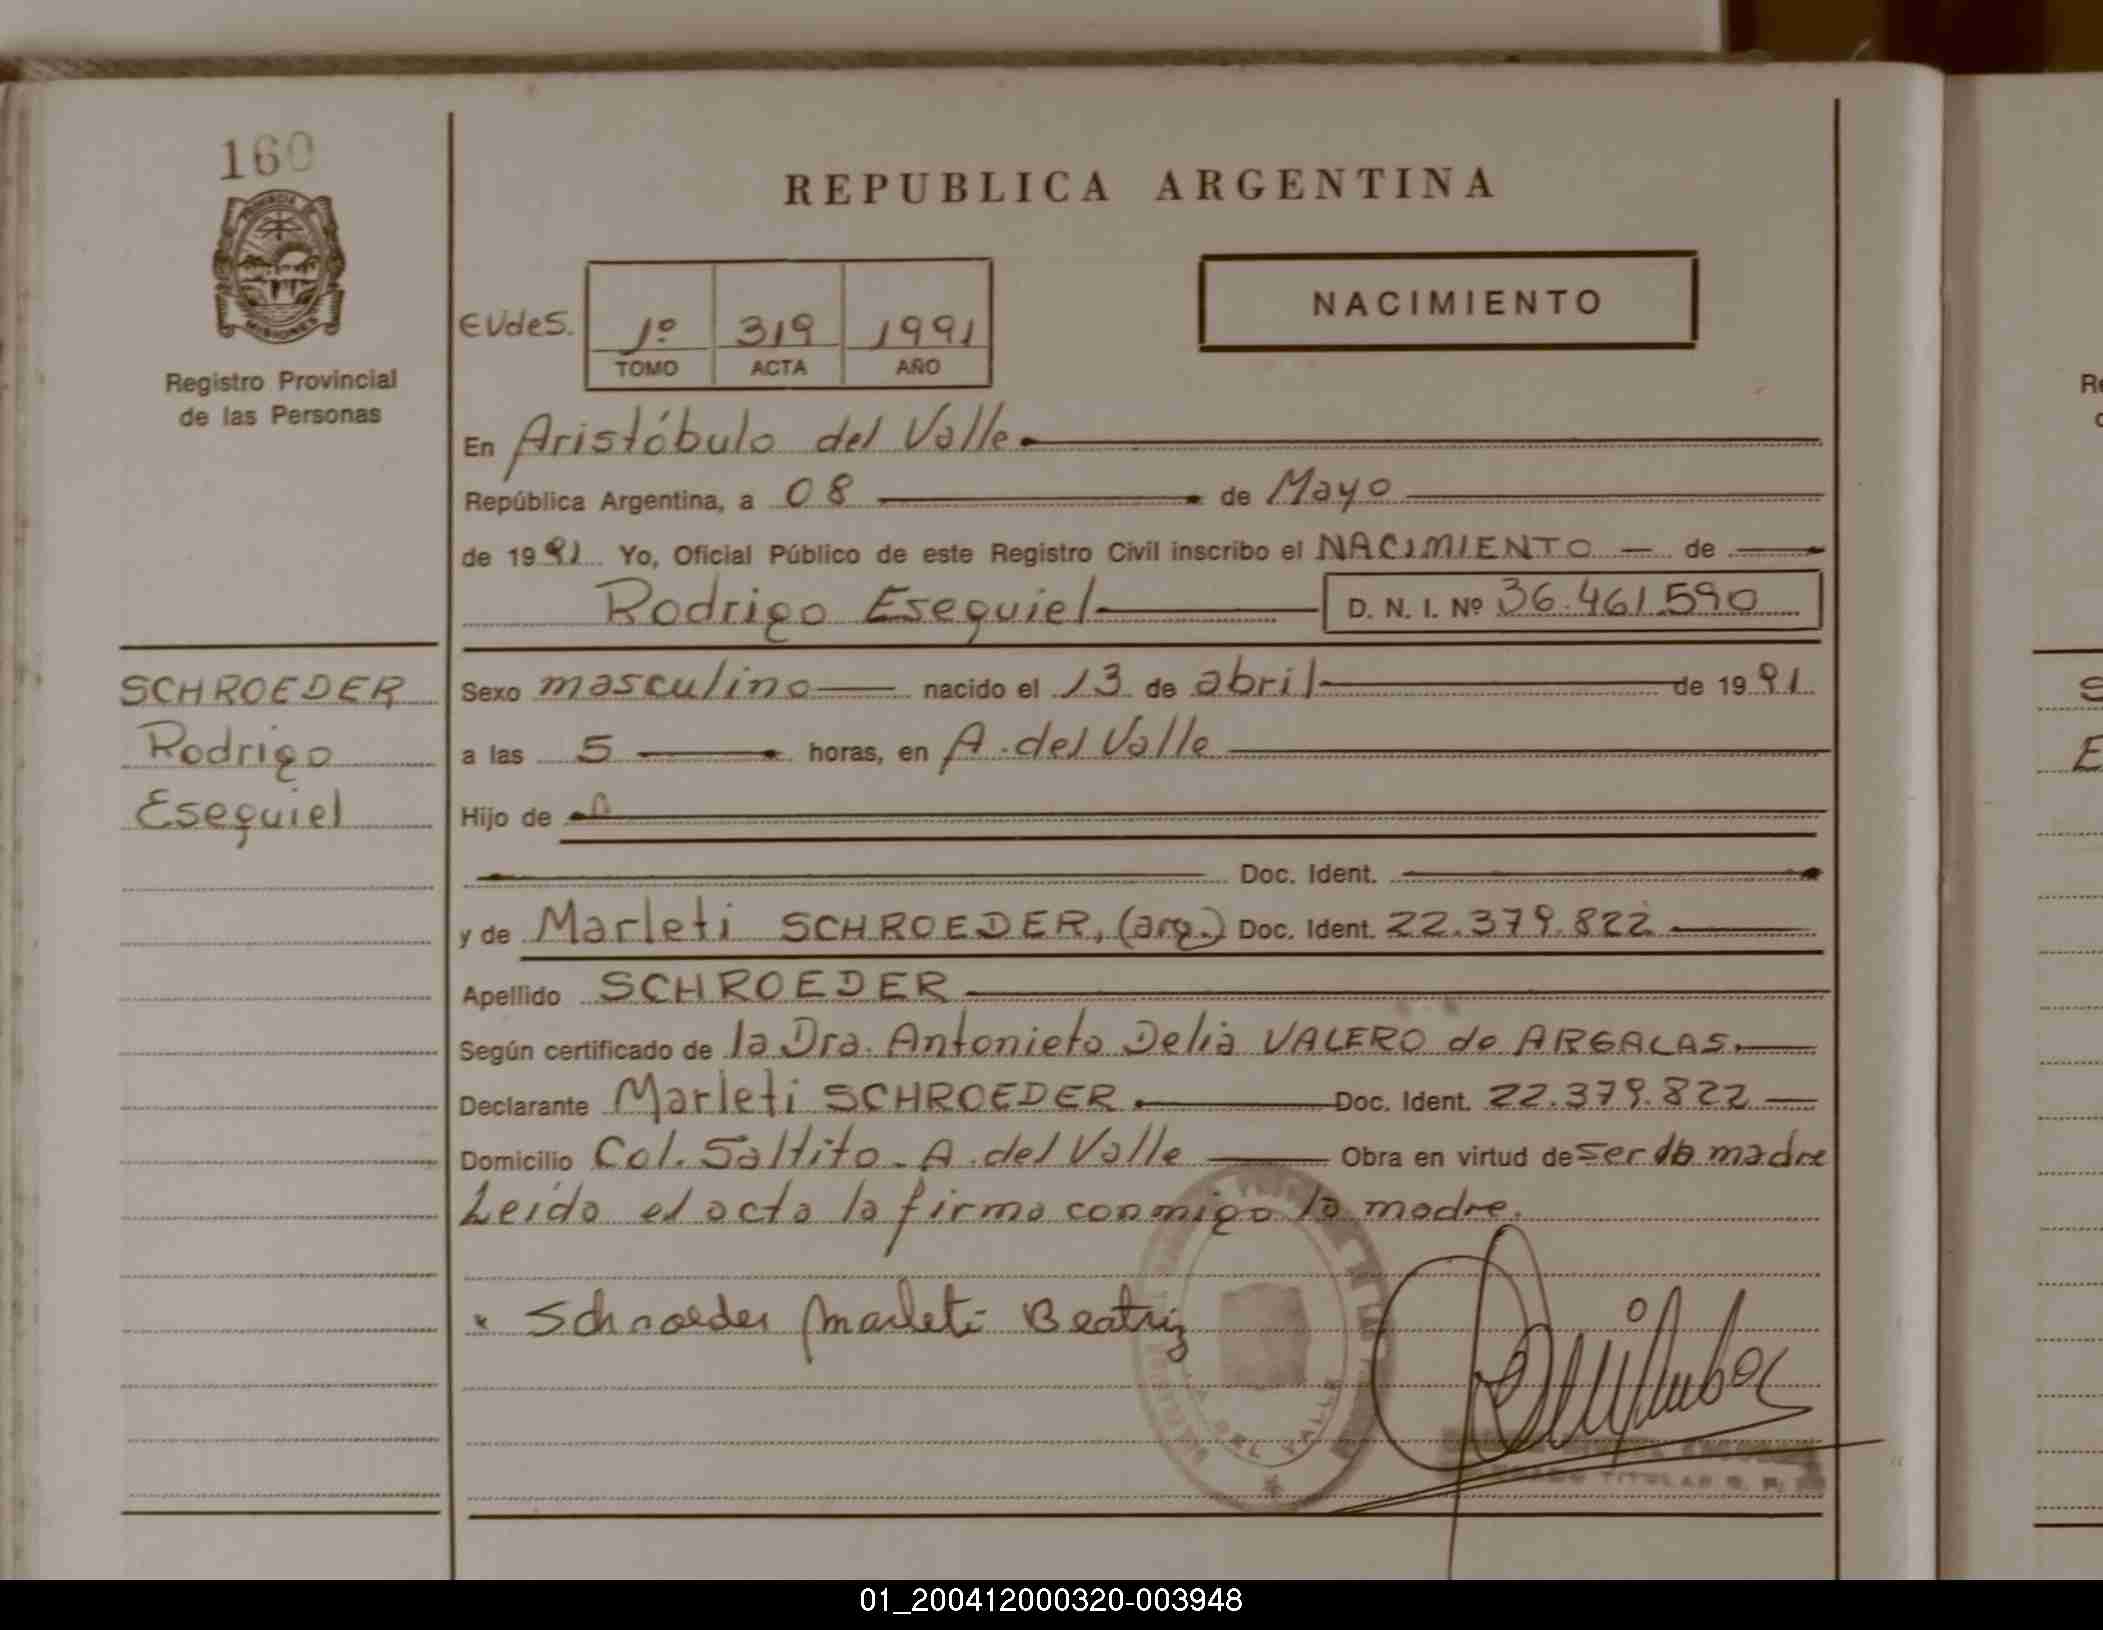 160
PROVINCIA DE
MISIONES
Registro Provincial
de las Personas
REPUBLICA ARGENTINA
EUdeS.
1º 319 1991
TOMO ACTA AÑO
NACIMIENTO
En Aristóbulo del Valle
República Argentina, a 08 de Mayo
de 1991 Yo, Oficial Público de este Registro Civil inscribo el NACIMIENTO — de
Rodrigo Esequiel D. N. I. Nº 36.461.590
SCHROEDER
Rodrigo
Esequiel
Sexo masculino nacido el 13 de abril de 1991
a las 5 horas, en A. del Valle
Hijo de
Doc. Ident.
y de Marleti SCHROEDER, (arg.) Doc. Ident. 22.379.822
Apellido SCHROEDER
Según certificado de la Dra. Antonieta Delia VALERO de ARGALAS.
Declarante Marleti SCHROEDER. Doc. Ident. 22.379.822
Domicilio Col. Saltito - A. del Valle Obra en virtud de ser la madre
Leída el acta la firma conmigo la madre.
x Schroeder Marleti Beatriz
DEL VALLE
TITULAR R. P.
Re
S
E
01_200412000320-003948